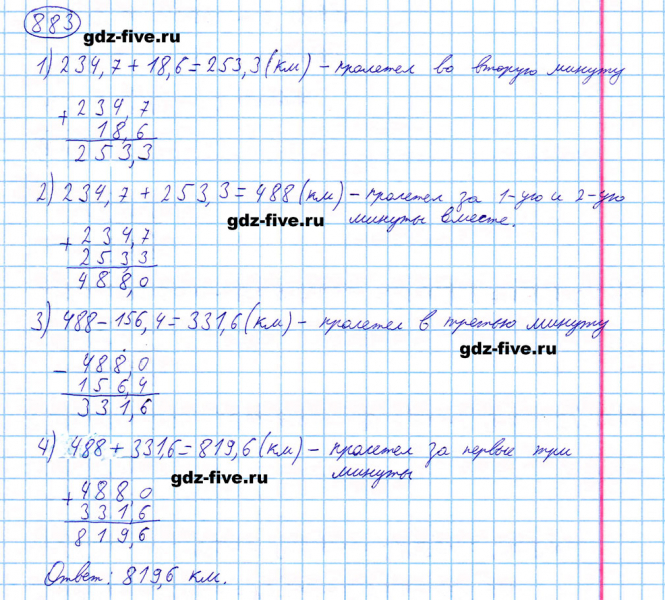 883
gdz-five.ru
1) 234,7 + 18,6 = 253,3 (км) - пролетел во вторую минуту
+ 234,7
18,6
253,3
2) 234,7 + 253,3 = 488 (км) - пролетел за 1-ую и 2-ую
gdz-five.ru минуты вместе.
+ 234,7
253,3
488,0
3) 488 - 156,4 = 331,6 (км) - пролетел в третью минуту
gdz-five.ru
- 488,0
156,4
331,6
4) 488 + 331,6 = 819,6 (км) - пролетел за первые три
gdz-five.ru минуты
+ 488,0
331,6
819,6
Ответ: 819,6 км.